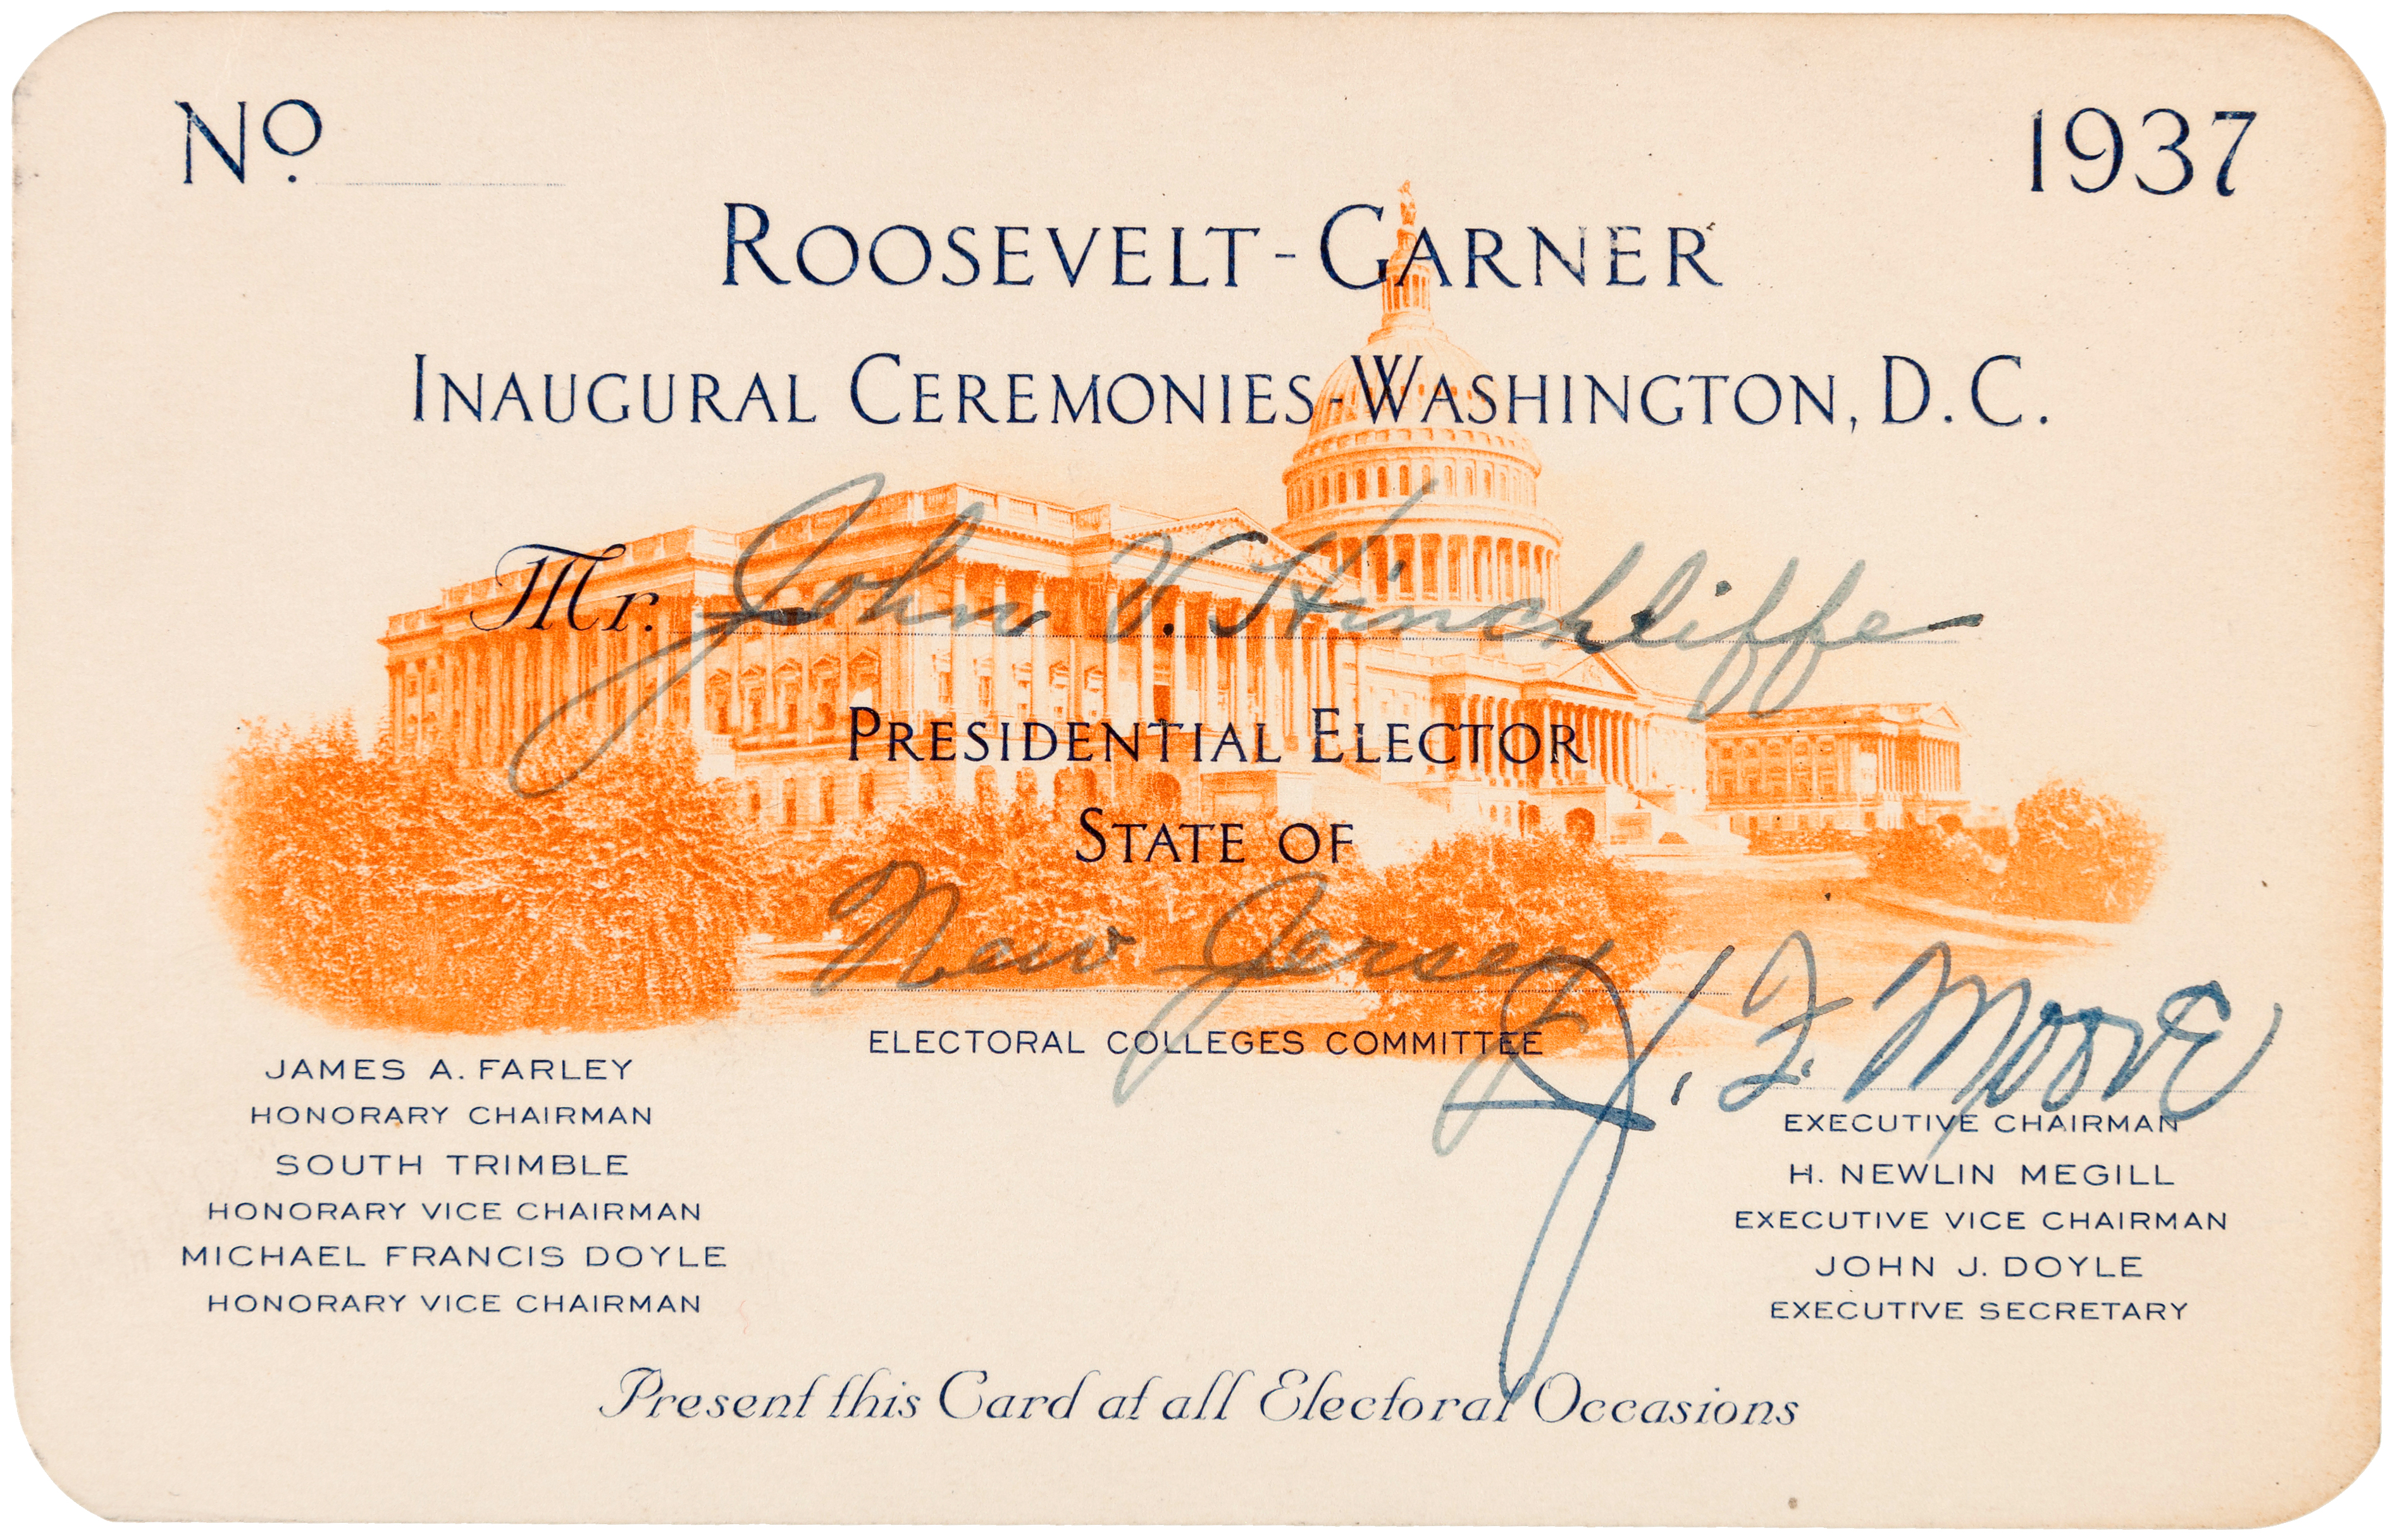 No. 1937
ROOSEVELT-GARNER
INAUGURAL CEREMONIES-WASHINGTON, D.C.
Mr. John V. Hinchliffe
PRESIDENTIAL ELECTOR
STATE OF
New Jersey
ELECTORAL COLLEGES COMMITTEE
JAMES A. FARLEY
HONORARY CHAIRMAN
SOUTH TRIMBLE
HONORARY VICE CHAIRMAN
MICHAEL FRANCIS DOYLE
HONORARY VICE CHAIRMAN
J. F. Moore
EXECUTIVE CHAIRMAN
H. NEWLIN MEGILL
EXECUTIVE VICE CHAIRMAN
JOHN J. DOYLE
EXECUTIVE SECRETARY
Present this Card at all Electoral Occasions